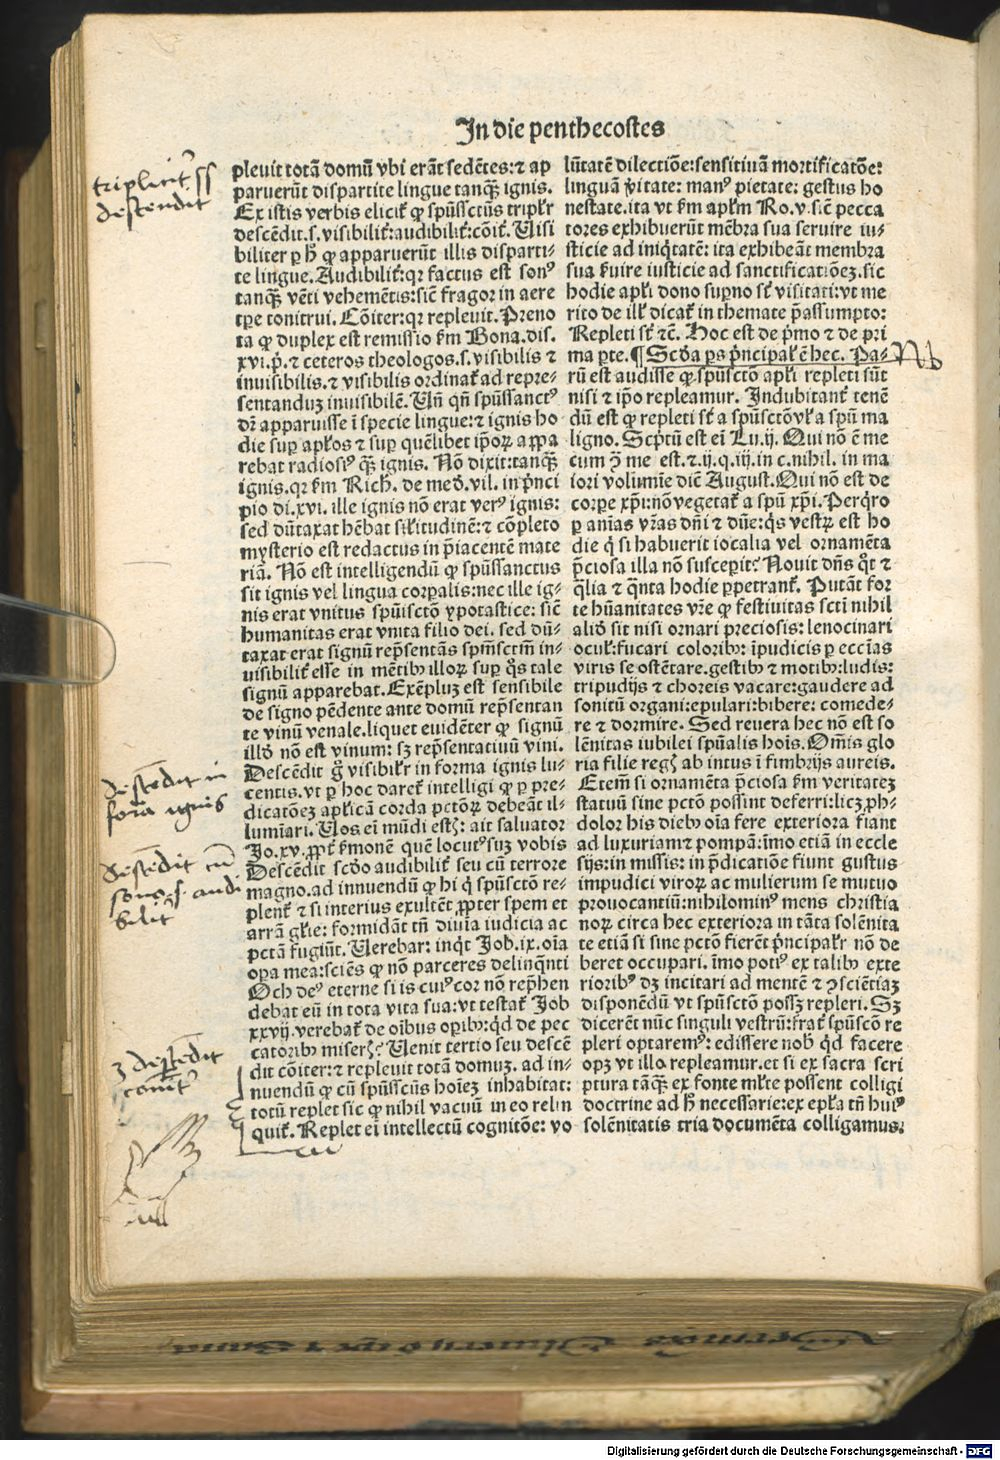 In die penthecostes
pleuit totā domū vbi erāt sedētes: ⁊ ap
paruerūt dispartite lingue tanq̄ꝫ ignis.
Ex istis verbis elicit᷑ ꝙ spūssctūs tripłr
descēdit .s. visibilit᷑: audibilit᷑: cōit᷑. Uisi
biliter ꝑ h̄ ꝙ apparuerūt illis disparti-
te lingue. Audibilit᷑: qr factus est sonꝰ
tanq̄ꝫ vēti vehemētis: sic̄ fragor in aere
tꝑe tonitrui. Cōiter: qr repleuit. Preno
ta ꝙ duplex est remissio k̄m Bona. dis.
xvi. p̄. ⁊ ceteros theologos .s. visibilis ⁊
inuisibilis. ⁊ visibilis ordinat᷑ ad repre-
sentanduꝫ inuisibilē. Uñ qñ spūssanctꝰ
dr̄ apparuisse ī specie lingue: ⁊ ignis ho
die suꝑ apłos ⁊ suꝑ quēlibet ip̄oꝝ appa
rebat radiosiꝰ q̄ꝫ ignis. Nō dixit: tanq̄ꝫ
ignis. qr k̄m Rich. de med. vil. in p̄nci
pio di. xvi. ille ignis nō erat verꝰ ignis:
sed dūtaxat hēbat sił'itudinē: ⁊ cōpleto
mysterio est redactus in p̄iacentē mate
riā. Nō est intelligendū ꝙ spūssanctus
sit ignis vel lingua corꝑalis: nec ille ig-
nis erat vnitus spūisctō ypotastice: sic̄
humanitas erat vnita filio dei. sed dū-
taxat erat signū rep̄sentās spm̄sctm̄ in-
uisibilit᷑ esse in mētibꝰ illoꝝ suꝑ q̊s tale
signū apparebat. Exēpluꝫ est sensibile
de signo pēdente ante domū rep̄sentan
te vinū venale. liquet euidēter ꝙ signū
illd̓ nō est vinum: sꝫ rep̄sentatiuū vini.
Descēdit g̊ visibilr̄ in forma ignis lu-
centis. vt ꝑ hoc daret᷑ intelligi ꝙ ꝑ pre-
dicatōeꝫ apl̓icā corda pctōꝝ debeāt il-
lumīari. Uos eī mūdi estꝫ: ait saluator
Jo. xv. ꝓpt᷑ k̄monē quē locutꝰ suꝫ vobis
Descēdit scd̓o audibilit᷑ seu cū terrore
magno. ad innuendū ꝙ hi q̇ spūsctō re-
plent᷑ ⁊ si interius exultēt ꝓpter spem et
arrā głie: formidāt tñ diuīa iudicia ac
pctā fugiūt. Uerebar: inq̇t Job. ix. oīa
oꝑa mea: sciēs ꝙ nō parceres delinq̄nti
Och deꝰ eterne si is cuiꝰ cor nō rep̄hen
debat eū in tota vita sua: vt testat᷑ Job
xxvij. verebat᷑ de oībus oꝑibꝰ: qd̓ de pec
catoribꝰ miserꝫ? Uenit tertio seu descē
dit cōiter: ⁊ repleuit totā domuꝫ. ad in-
nuendū ꝙ cū spūsscūs hoīeꝫ inhabitat:
totū replet sic ꝙ nihil vacuū in eo relin
quit᷑. Replet eī intellectū cognitōe: vo
lūtatē dilectiōe: sensitiuā mortificatōe:
linguā v̄itate: manꝰ pietate: gestus ho
nestate. ita vt k̄m apłm Ro. v. sic̄ pecca
tores exhibuerūt mēbra sua seruire iu-
sticie ad iniq̇tatē: ita exhibeāt membra
sua k̄uire iusticie ad sanctificatiōeꝫ. sic
hodie apłi dono suꝑno st᷑ visitati: vt me
rito de ill᷑ dicat᷑ in themate p̄assumpto:
Repleti st᷑ ⁊c̄. Hoc est de p̄mo ⁊ de pri
ma ꝑte. ¶ Scd̓a ꝑs p̄ncipał ē hec. Pa-
rū est audisse ꝙ spūsctō apłi repleti sūt
nisi ⁊ ip̄o repleamur. Indubitant᷑ tenē
dū est ꝙ repleti st᷑ a spūsctō vł a spū ma
ligno. Scptū est eī Lu. ij. Qui nō ē me
cum ꝯ̄ me est. ⁊. ij. q. iij. in c. nihil. in ma
iori volumīe dic̄ August. Qui nō est de
corꝑe xp̄i: nō vegetat᷑ a spū xp̄i. Perq̇ro
ꝑ anīas vr̄as dn̄i ⁊ dn̄e: q̇s vestꝝ est ho
die q̇ si habuerit iocalia vel ornamēta
p̄ciosa illa nō susceꝑit? Nouit dn̄s q̊t ⁊
q̄lia ⁊ q̄nta hodie ꝑpetrant᷑. Putāt for
te hūanitates vr̄e ꝙ festiuitas sctī nihil
aliđ sit nisi ornari preciosis: lenocinari
ocul᷑: fucari coloribꝰ: īpudicis ꝑ eccīas
viris se ostētare. gestibꝰ ⁊ motibꝰ: ludis:
tripudijs ⁊ choreis vacare: gaudere ad
sonitū organi: epulari: bibere: comede-
re ⁊ dormire. Sed reuera hec nō est so
lēnitas iubilei spūalis hoīs. Om̄is glo
ria filie regꝫ ab intus ī fimbrijs aureis.
Etem̄ si ornamēta p̄ciosa k̄m veritateꝫ
statuū sine pctō possint deferri: licꝫ ꝓh-
dolor his diebꝰ oīa fere exteriora fiant
ad luxuriam ⁊ pompā: īmo etiā in eccle
sijs: in missis: in p̄dicatiōe fiunt gustus
impudici viroꝝ ac mulierum se mutuo
prouocantiū: nihilominꝰ mens christia
noꝝ circa hec exteriora in tāta solēnita
te etiā si sine pctō fierēt p̄ncipałr nō de
beret occupari. īmo potiꝰ ex talibꝰ exte
rioribꝰ dꝫ incitari ad mentē ⁊ ꝯsciētiaꝫ
disponēdū vt spūsctō possꝫ repleri. Sꝫ
dicerēt nūc singuli vestrū: frat᷑ spūscō re
pleri optaremꝰ: edissere nob̓ qd̓ facere
oꝑꝫ vt illo repleamur. et si ex sacra scri
ptura tāq̄ꝫ ex fonte mł'te possent colligi
doctrine ad h̄ necessarie: ex epła tñ huiꝰ
solēnitatis tria documēta colligamus.
triplicit᷑ ss
descendit
Nb
descēdit in
forā ignis
descēdit cū
sono .s. audi
bilit᷑
3 descēdit
comit᷑
Digitalisierung gefördert durch die Deutsche Forschungsgemeinschaft - DFG